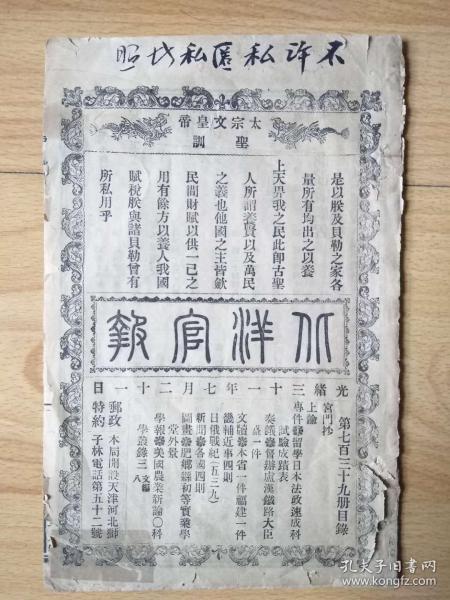 不許私匿私找照
太宗文皇帝
聖訓
是以朕及貝勒之家各
量所有均出之以養
上天畀我之民此即古聖
人所謂養賢以及萬民
之義也他國之主皆歛
民間財賦以供一己之
用有餘方以養人我國
賦稅朕與諸貝勒曾有
所私用乎
北洋官報
光緒三十一年七月二十一日
第七百三十九册目錄
宮門抄
上諭
專件 留學日本法政速成科
試驗成蹟表
奏議 督辦盧漢鐵路大臣
盛一件
文牘 本省一件福建一件
畿輔近事四則
日俄戰紀(五三九)
新聞 各國四則
圖畫 肥鄉縣初等實業學
堂外景
學報 美國農業新論○科
學叢錄三文編八
郵政 本局開設天津河北獅
特約 子林電話第五十二號
孔夫子旧书网
www.kongfz.com